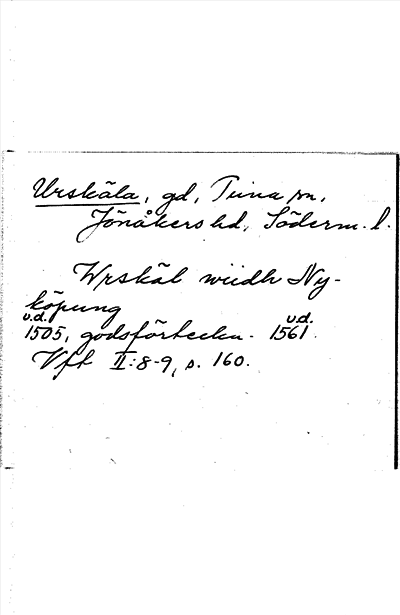 Urskäla, gd, Tuna sn,
Jönåkers hd, Söderm. l.
Wrskäl wiidh Ny-
köpung
u.d. u.d.
1505, godsförteckn. 1561.
Vft II:8-9, s. 160.